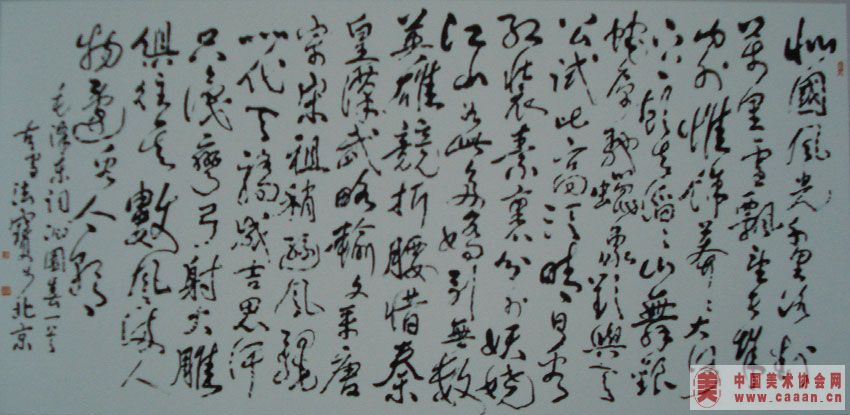 北國風光千里冰封
萬里雪飄望長城
内外惟餘莽々大河
上下頓失滔々山舞銀
蛇原馳蠟象欲與天
公試比高須晴日看
紅裝素裹分外妖嬈
江山如此多嬌引無數
英雄競折腰惜秦
皇漢武略輸文采唐
宗宋祖稍遜風騷
一代天驕成吉思汗
只識彎弓射大雕
俱往矣數風流人
物還看今朝
毛澤東詞沁園春一首
法寶 北京
美
中国美术协会网
www.caaan.cn